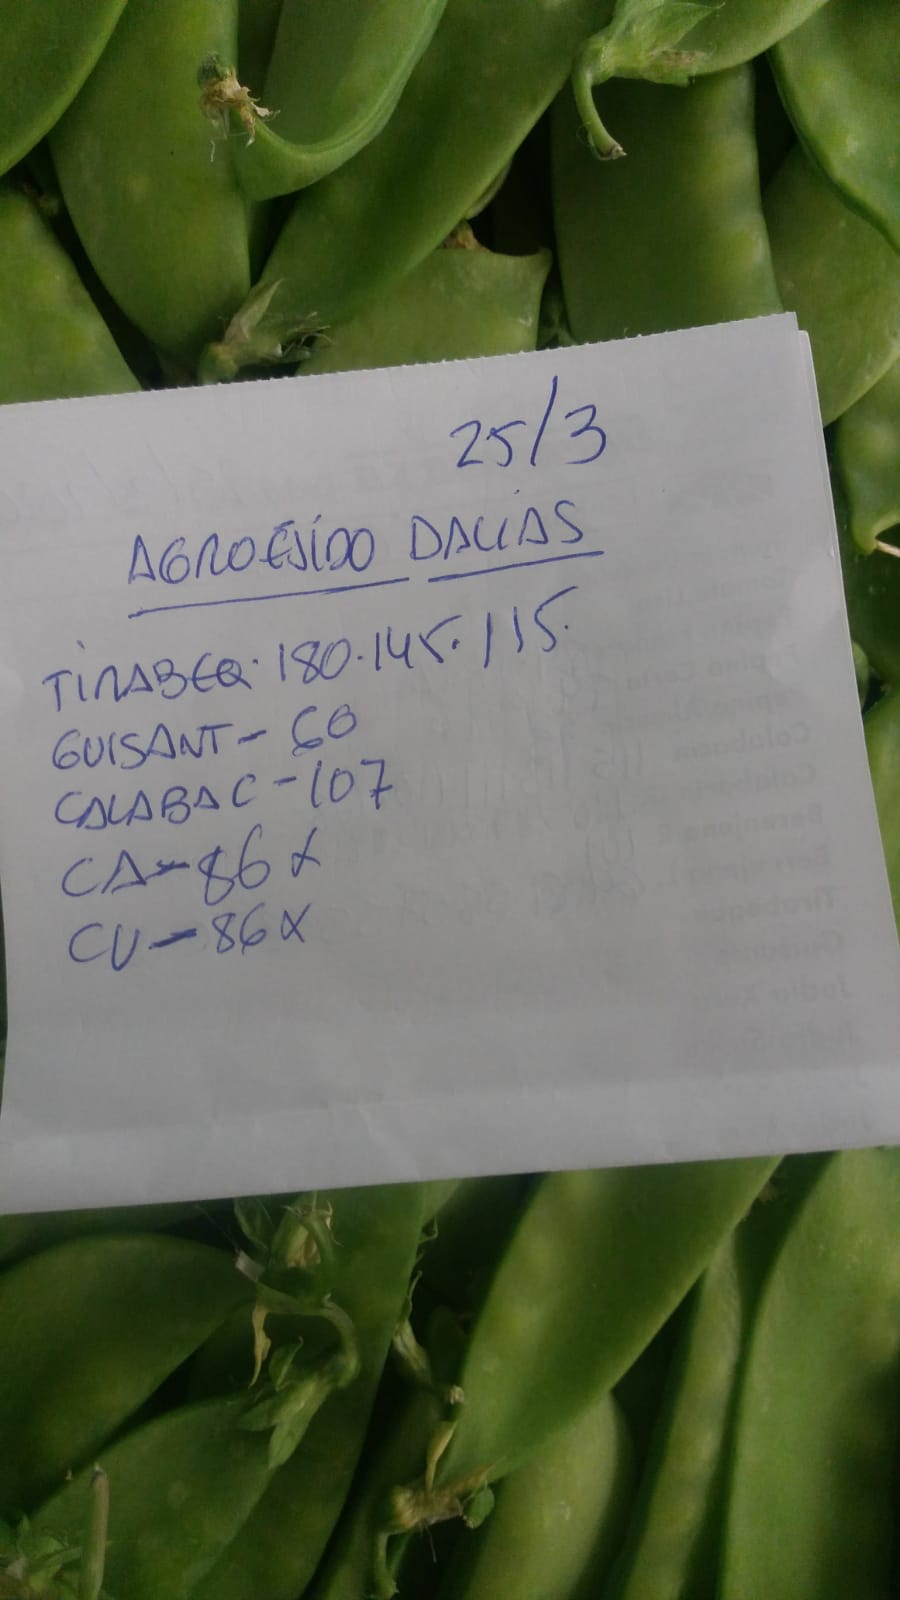 25/3
AGROEJIDO DALIAS
TIRABEQ. 180.145.115.
GUISANT - 60
CALABAC - 107
CA - 86 X
CU - 86 X